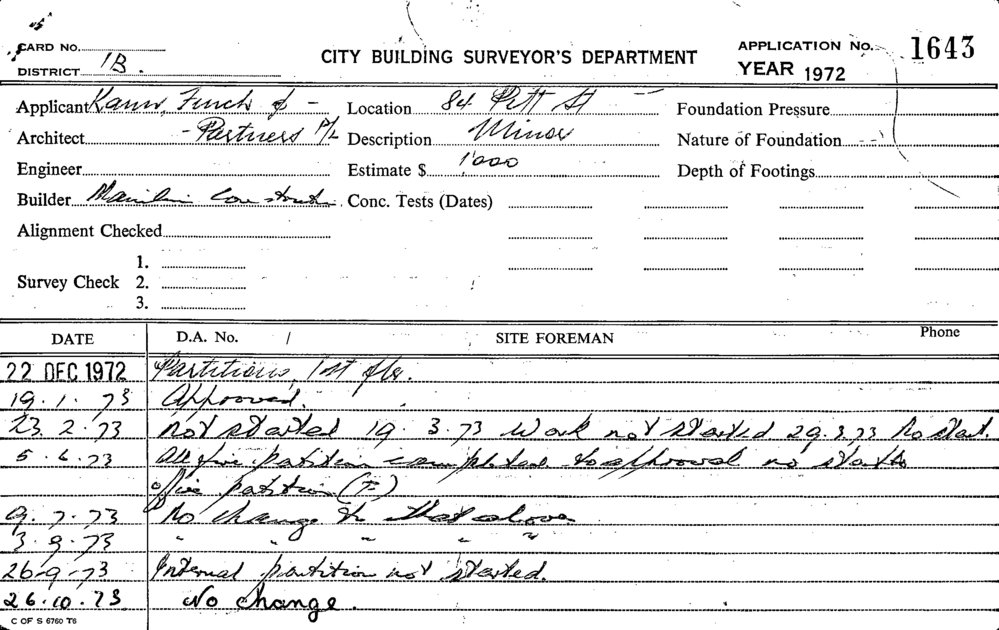 CARD NO.
CITY BUILDING SURVEYOR'S DEPARTMENT
APPLICATION No. 1643
DISTRICT 1B.
YEAR 1972
Applicant Kann, Finch & - Location 84 Pitt St Foundation Pressure
Architect - Partners P/L Description Minor Nature of Foundation
Engineer Estimate $ 1'000 Depth of Footings
Builder Mainline Construct Conc. Tests (Dates)
Alignment Checked
1.
Survey Check 2.
3.
DATE D.A. No. / SITE FOREMAN Phone
22 DEC 1972 Partitions, 1st flr.
19.1.73 Approved.
23.2.73 Not started 19.3.73 Work not started 29.3.73 No start.
5.6.73 All fire partition completed to approval no start to
office partition (F)
9.7.73 No change to that above
3.9.73 " " " " "
26-9-73 Internal partition not started.
26.10.73 No change.
C OF S 6760 T6